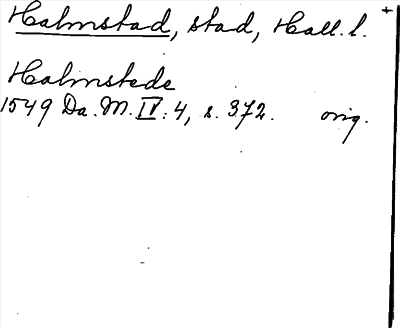 Halmstad, stad, Hall. l. +
Halmstede
1549 Da. M. IV: 4, s. 372. orig.